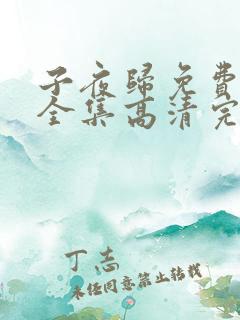 子夜歸免費
全集高清完
丁志
未经同意禁止转载